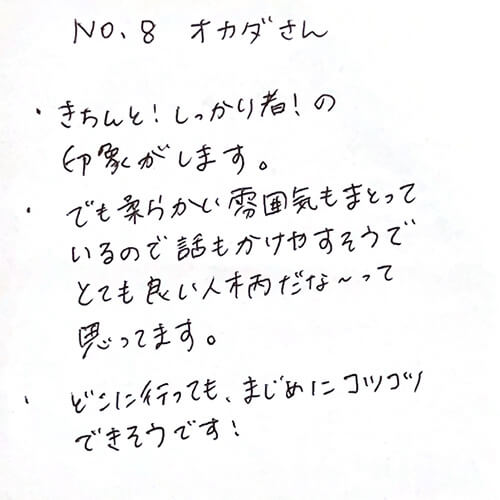 NO. 8 オカダさん
・きちんと!しっかり者!の
印象がします。
・でも柔らかい雰囲気もまとって
いるので話もかけやすそうで
とても良い人柄だな~って
思ってます。
・どこに行っても、まじめにコツコツ
できそうです!